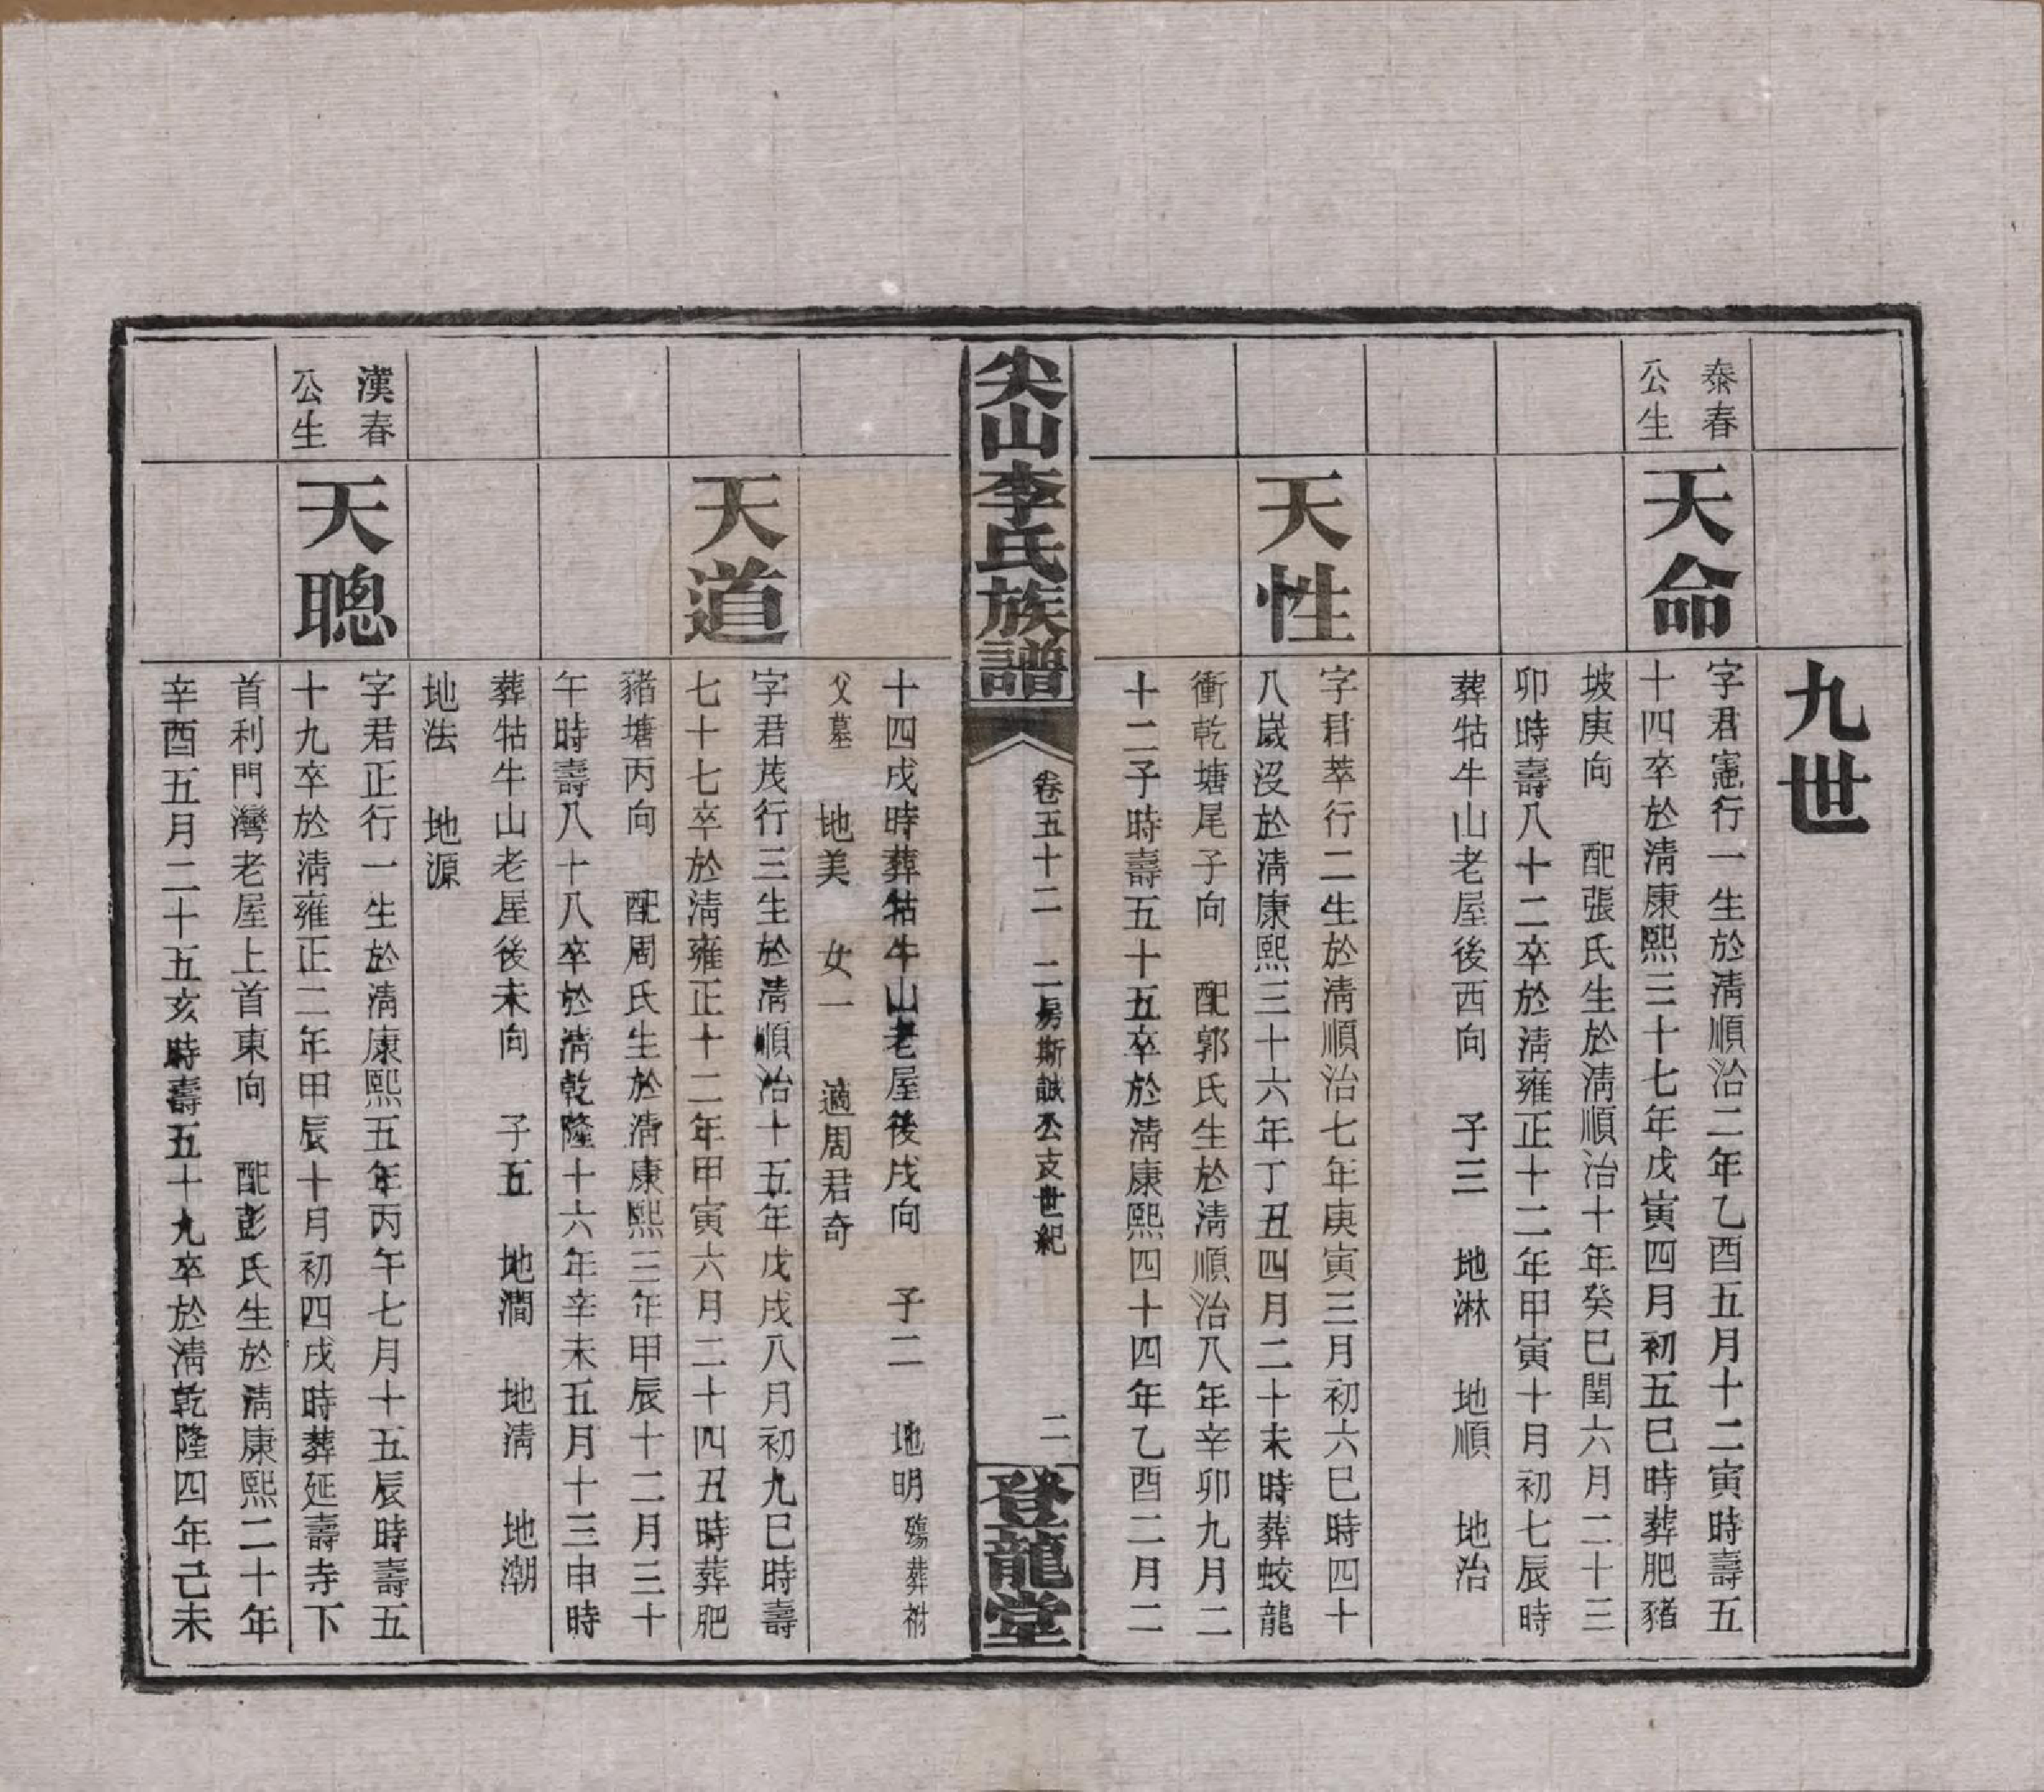 九世
泰春
公生
天命
字君憲行一生於淸順治二年乙酉五月十二寅時壽五
十四卒於淸康熙三十七年戊寅四月初五巳時葬肥豬
坡庚向 配張氏生於淸順治十年癸巳閏六月二十三
卯時壽八十二卒於淸雍正十二年甲寅十月初七辰時
葬牯牛山老屋後西向 子三 地淋 地順 地治
天性
字君萃行二生於淸順治七年庚寅三月初六巳時四十
八歲沒於淸康熙三十六年丁丑四月二十未時葬蛟龍
衝乾塘尾子向 配郭氏生於淸順治八年辛卯九月二
十二子時壽五十五卒於淸康熙四十四年乙酉二月二
尖山李氏族譜
卷五十二 二房斯誠公支世紀
二
登龍堂
十四戌時葬牯牛山老屋後戌向 子二 地明殤葬祔
父墓 地美 女一 適周君奇
天道
字君茂行三生於淸順治十五年戊戌八月初九巳時壽
七十七卒於淸雍正十二年甲寅六月二十四丑時葬肥
豬塘丙向 配周氏生於淸康熙三年甲辰十二月三十
午時壽八十八卒於淸乾隆十六年辛未五月十三申時
葬牯牛山老屋後未向 子五 地澗 地淸 地潮
地法 地源
漢春
公生
天聰
字君正行一生於淸康熙五年丙午七月十五辰時壽五
十九卒於淸雍正二年甲辰十月初四戌時葬延壽寺下
首利門灣老屋上首東向 配彭氏生於淸康熙二十年
辛酉五月二十五亥時壽五十九卒於淸乾隆四年己未